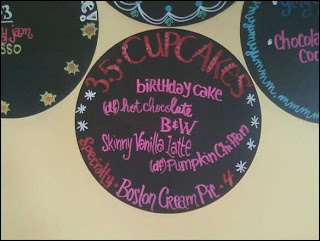 3.5 • CUPCAKES
birthday cake
(df) hot chocolate
B&W
Skinny Vanilla Latte
(df) Pumpkin Chiffon
Specialty • Boston Cream Pie • 4
jam
Chocola